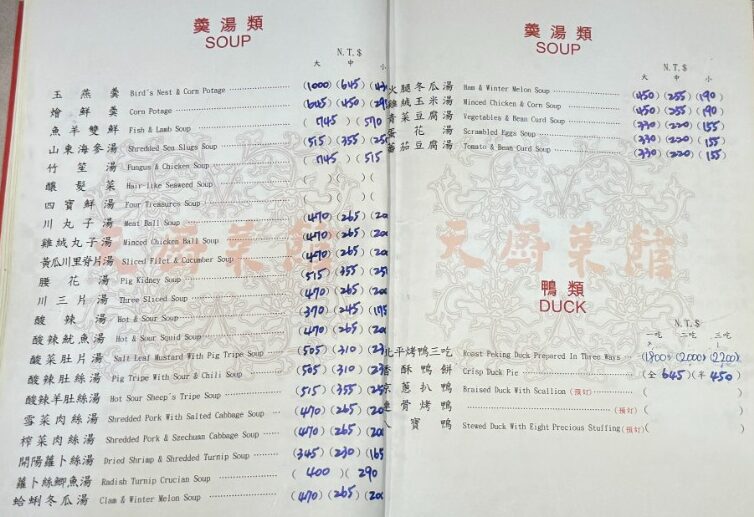 羹湯類
SOUP
N.T.$
大 中 小
玉燕羹 Bird's Nest & Corn Potage (1000) (645)
燴鮮羹 Corn Potage (645) (450)
魚羊雙鮮 Fish & Lamb Soup (745) (570
山東海參湯 Shredded Sea Slugs Soup (515) (355)
竹笙湯 Fungus & Chicken Soup (745) (515
釀髮菜 Hair-like Seaweed Soup ( ) ( ) (
四寶鮮湯 Four Treasures Soup ( ) ( ) (
川丸子湯 Meat Ball Soup (470) (265)
雞絨丸子湯 Minced Chicken Ball Soup (470) (265)
黃瓜川里脊片湯 Sliced Filet & Cucumber Soup (470) (265)
腰花湯 Pig Kidney Soup (515) (355)
川三片湯 Three Sliced Soup (470) (265)
酸辣湯 Hot & Sour Soup (370) (245)
酸辣魷魚湯 Hot & Sour Squid Soup (470) (265)
酸菜肚片湯 Salt Leaf Mustard With Pig Tripe Soup (505) (310)
酸辣肚絲湯 Pig Tripe With Sour & Chili Soup (505) (310)
酸辣羊肚絲湯 Hot Sour Sheep's Tripe Soup (515) (355)
雪菜肉絲湯 Shredded Pork With Salted Cabbage Soup (470) (265)
榨菜肉絲湯 Shredded Pork & Szechuan Cabbage Soup (470) (265)
開陽蘿卜絲湯 Dried Shrimp & Shredded Turnip Soup (345) (230)
蘿卜絲鯽魚湯 Radish Turnip Crucian Soup (400) (290
蛤蜊冬瓜湯 Clam & Winter Melon Soup (470) (265)
羹湯類
SOUP
N.T.$
大 中 小
火腿冬瓜湯 Ham & Winter Melon Soup (450) (255) (190)
雞絨玉米湯 Minced Chicken & Corn Soup (450) (255) (190)
青菜豆腐湯 Vegetables & Bean Curd Soup (330) (220) (155)
蛋花湯 Scrambled Eggs Soup (330) (220) (155)
蕃茄豆腐湯 Tomato & Bean Curd Soup (330) (220) (155)
天廚菜館
鴨類
DUCK
N.T.$
一吃 二吃 三吃
北平烤鴨三吃 Roast Peking Duck Prepared In Three Ways (1800) (2000) (2200)
香酥鴨餅 Crisp Duck Pie (全 645) (半 450)
京蔥扒鴨 Braised Duck With Scallion (預訂) (
骨烤鴨 (預訂) (
八寶鴨 Stewed Duck With Eight Precious Stuffing (預訂) (